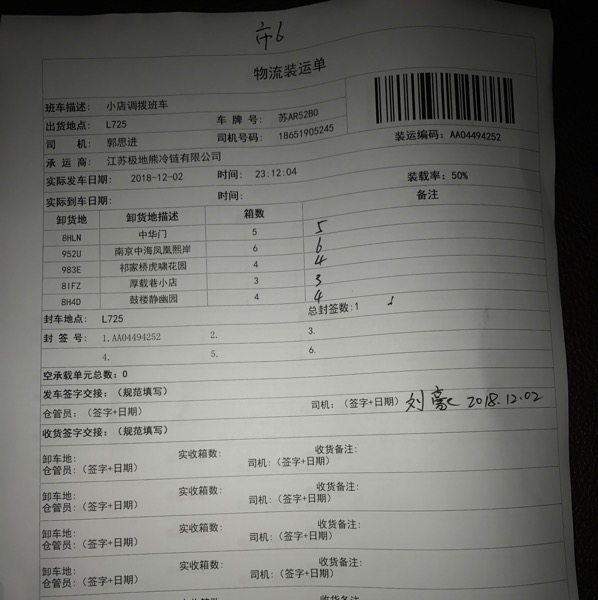 市6
物流装运单
班车描述: 小店调拨班车
出货地点: L725 车 牌 号: 苏AR52B0
司 机: 郭思进 司机号码: 18651905245 装运编码: AA04494252
承 运 商: 江苏极地熊冷链有限公司
实际发车日期: 2018-12-02 时间: 23:12:04 装载率: 50%
实际到车日期: 时间: 备注
卸货地 卸货地描述 箱数
8HLN 中华门 5 5
952U 南京中海凤凰熙岸 6 6
983E 祁家桥虎啸花园 4 4
8IFZ 厚载巷小店 3 3
8H4D 鼓楼静幽园 4 4
封车地点: L725 总封签数:1
封 签 号: 1.AA04494252 2. 3.
4. 5. 6.
空承载单元总数: 0
发车签字交接: (规范填写)
仓管员: (签字+日期) 司机: (签字+日期) 刘豪 2018.12.02
收货签字交接: (规范填写)
卸车地: 实收箱数: 收货备注:
仓管员: (签字+日期) 司机: (签字+日期)
卸车地: 实收箱数: 收货备注:
仓管员: (签字+日期) 司机: (签字+日期)
卸车地: 实收箱数: 收货备注:
仓管员: (签字+日期) 司机: (签字+日期)
卸车地: 实收箱数: 收货备注:
仓管员: (签字+日期) 司机: (签字+日期)